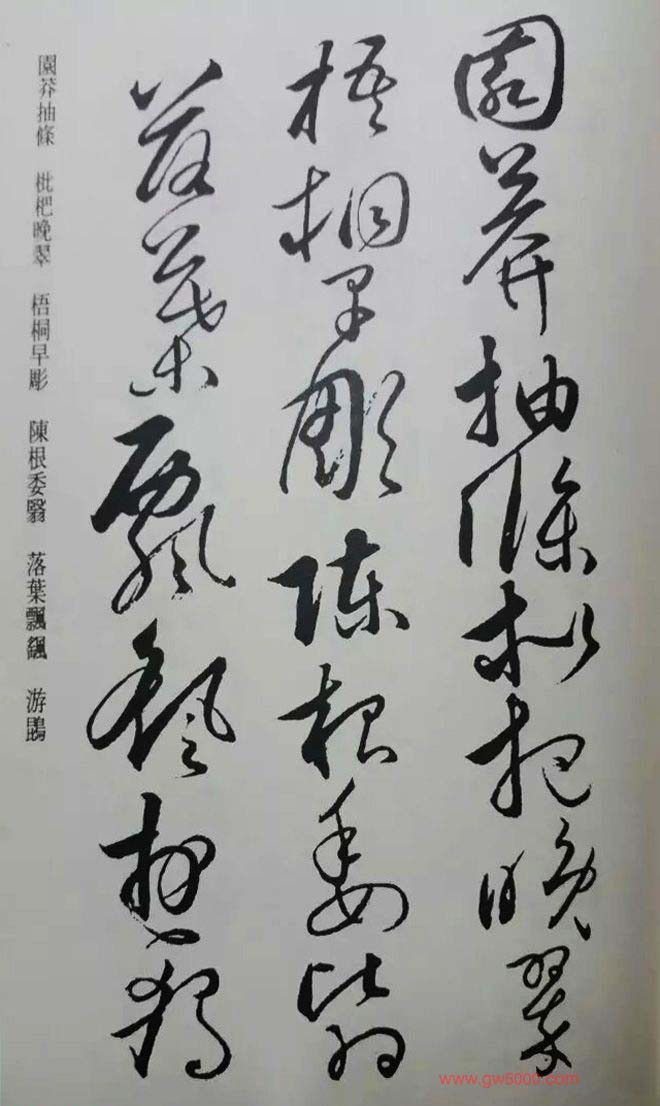 園莽抽條枇杷晚翠
梧桐早彫陳根委翳
落葉飄颻游鵾
園莽抽條 枇杷晚翠 梧桐早彫 陳根委翳 落葉飄颻 游鵾
www.gw5000.com